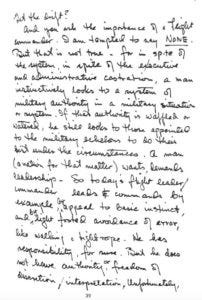 Get the drift?
And you ask the importance of a flight
commander. I am tempted to say NONE.
But that is not true - for in spite of
the system, in spite of the executive
and administrative castration, a man
instinctively looks to a system of
military authority in a military situation
or system. If that authority is waffled or
watered, he still looks to those appointed
to the military echelons to do their
best under the circumstances. A man
(another for that matter) wants, demands
leadership. So today's flight leader/
commander leads & commands by
example & by appeal to basic instinct
and, light footed avoidance of error,
like walking a tight-rope. He has
responsibility, for sure. But he does
not have authority or freedom of
discretion, interpretation. Unfortunately,
39